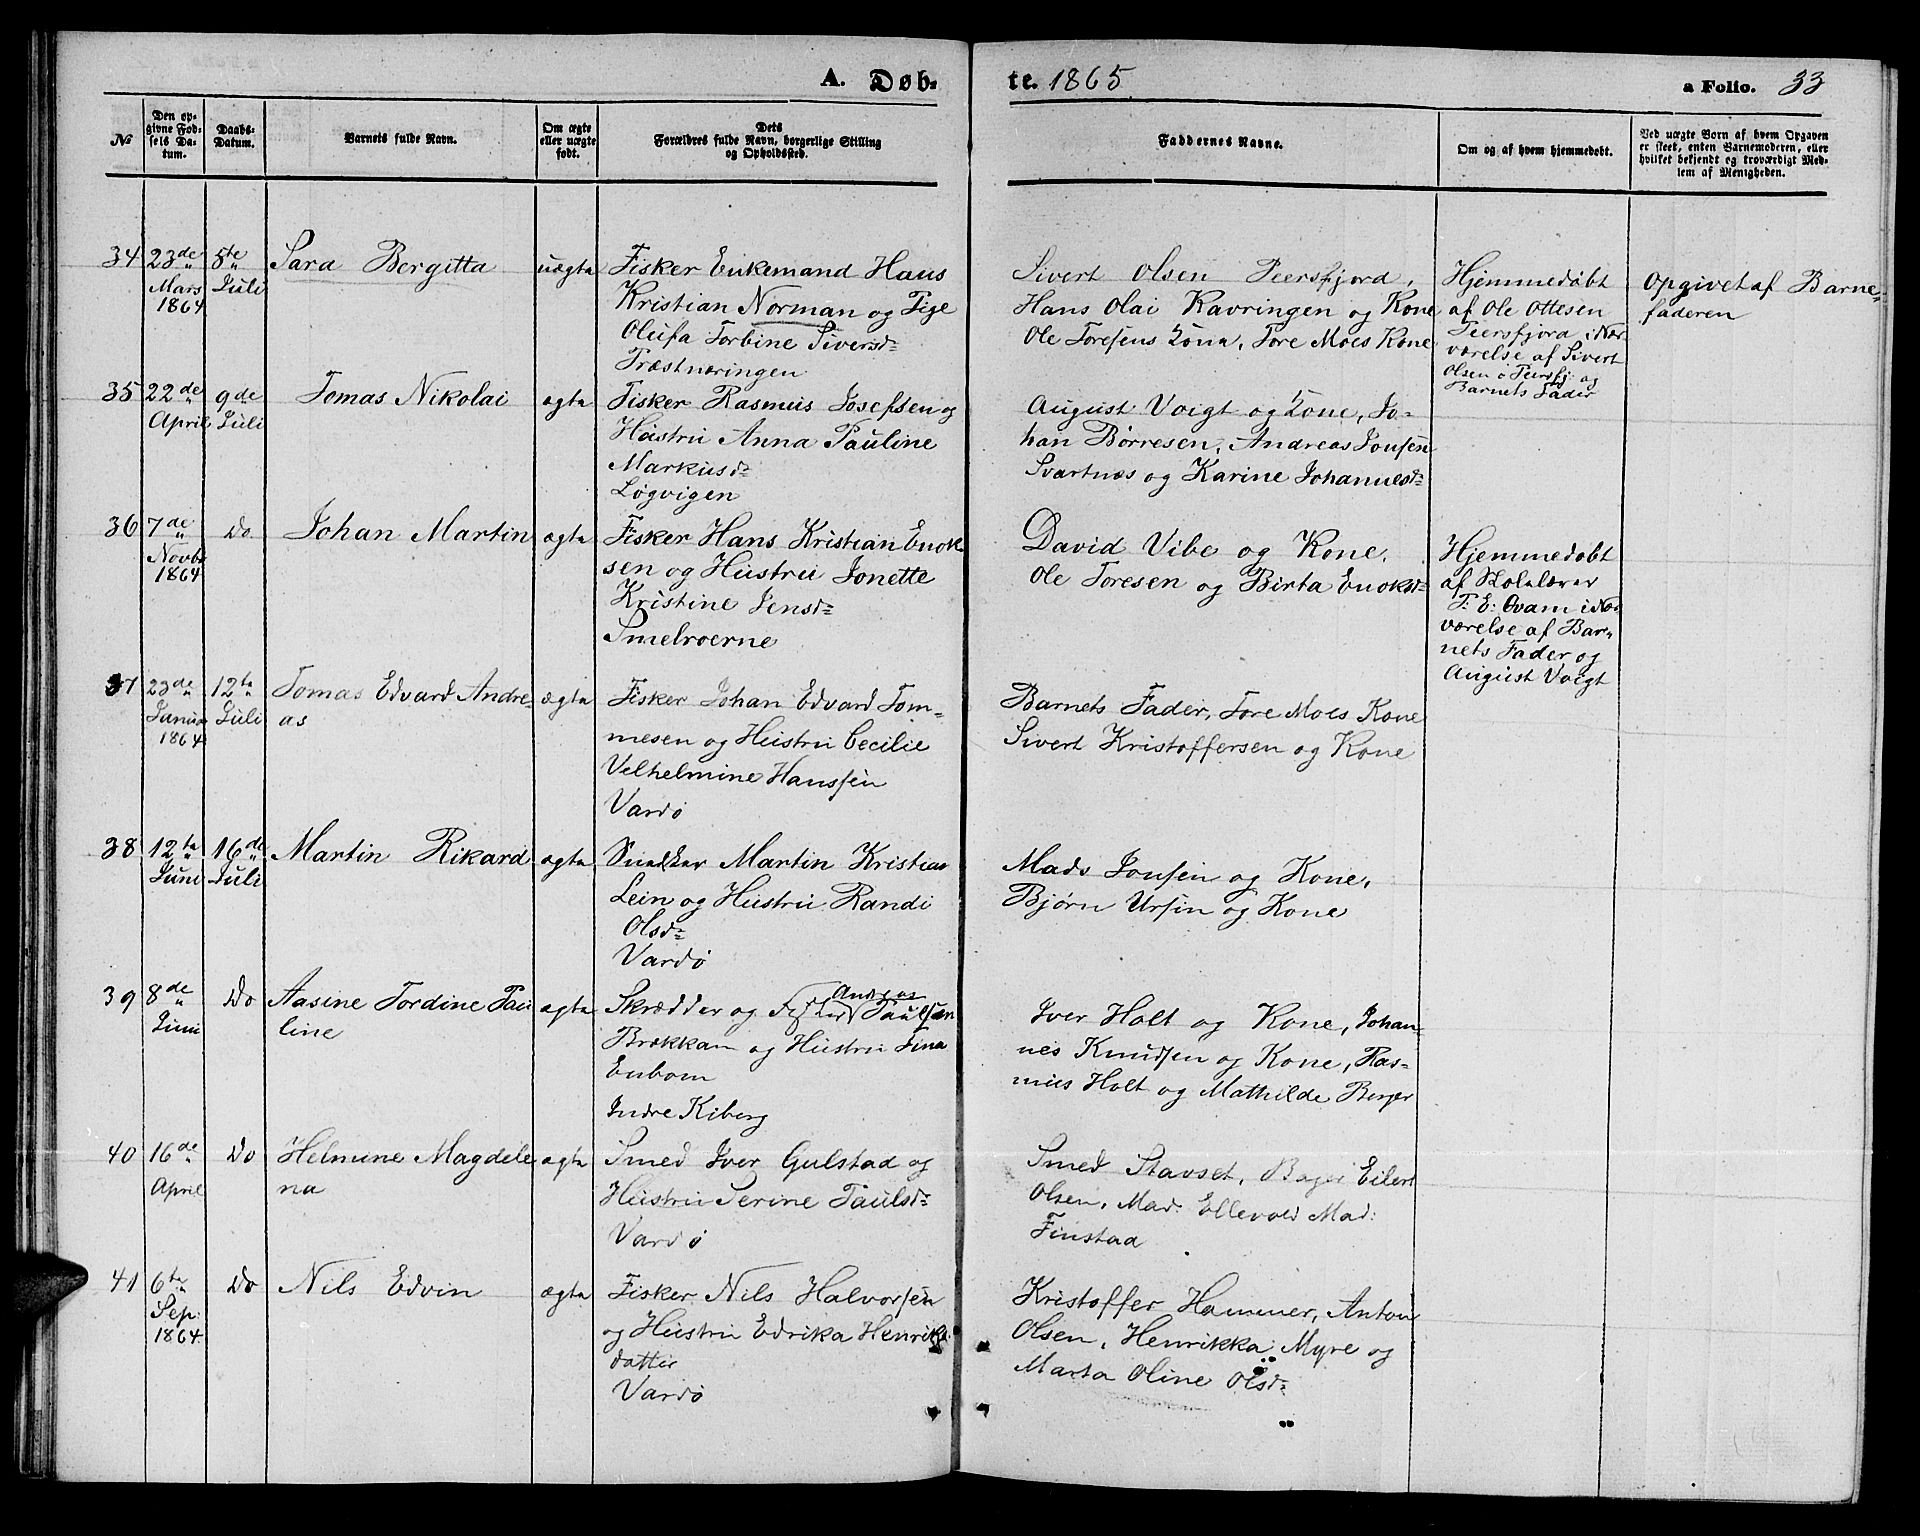 A. Døb-
te. 1865
a Folio. 33
№
Den op-
givne Fød-
sels Da-
tum.
Daabs-
Datum.
Barnets fulde Navn.
Om ægte
eller uægte
født.
Dets
Forældres fulde Navn, borgerlige Stilling
og Opholdssted.
Faddernes Navne.
Om og af hvem hjemmedøbt.
Ved uægte Børn af hvem Opgaven
er skeet, enten Barnemoderen, eller
hvilket bekjendt og troværdigt Med-
lem af Menigheden.
34
23de
Mars
1864
5te
Juli
Sara Bergitta
uægta
Fisker Enkemand Hans
Kristian Norman og Pige
Olufa Torbine Siversd=
Præstnæringen
Sivert Olsen Peersfjord,
Hans Olai Kavringen og Kone
Ole Toresens Kona, Tore Moes Kone
Hjemmedøbt
af Ole Ottesen
Peersfjord i Nær-
værelse af Sivert
Olsen i Peersfj: og
Barnets Fader
Opgivet af Barne-
faderen
35
22de
April
9de
Juli
Tomas Nikolai
ægta
Fisker Rasmus Josefsen og
Hustru Anna Pauline
Markusd=
Løgvigen
August Voigt og Kone, Jo-
han Børresen, Andreas Jonsen
Svartnæs og Karine Johannesd=
36
7de
Novbr
1864
Do
Johan Martin
ægta
Fisker Hans Kristian Enok
sen og Hustru Jonette
Kristine Jensd=
Smelroerne
David Vibe og Kone,
Ole Toresen og Birta Enoksd=
Hjemmedøbt
af Skolelærer
T: E: Qvam i Nær
værelse af Bar-
nets Fader og
August Voigt
37
23de
Januar
1864
12ta
Juli
Tomas Edvard Andre-
as
ægta
Fisker Johan Edvard Tom-
mesen og Hustru Cecilie
Velhelmine Hanssen
Vardø
Barnets Fader, Tore Moes Kone
Sivert Kristoffersen og Kone
38
12ta
Juni
16de
Juli
Martin Rikard
ægta
Snedker Martin Kristian
Lein og Hustru Randi
Olsd=
Vardø
Mads Jonsen og Kone,
Bjørn Ursin og Kone
39
8de
Juni
Do
Aasine Tordine Pau
line
ægta
Andreas
Skrædder og Fisker Paulsen
Brækkan og Hustru Fina
Enbom
Indre Kiberg
Iver Holt og Kone, Johan-
nes Knudsen og Kone, Ras-
mus Holt og Mathilde Berger
40
16de
April
Do
Helmine Magdele
na
ægta
Smed Iver Gulstad og
Hustru Serine Paulsd=
Vardø
Smed Stavset, Eilert
Olsen, Mad: Ellevold Mad:
Finstad
41
6te
Sep:
1864
Do
Nils Edvin
ægta
Fisker Nils Halvorsen
og Hustru Edrika Henrike
datter
Vardø
Kristoffer Hammer, Anton
Olsen, Henrikka Myre og
Marta Oline Olsd=